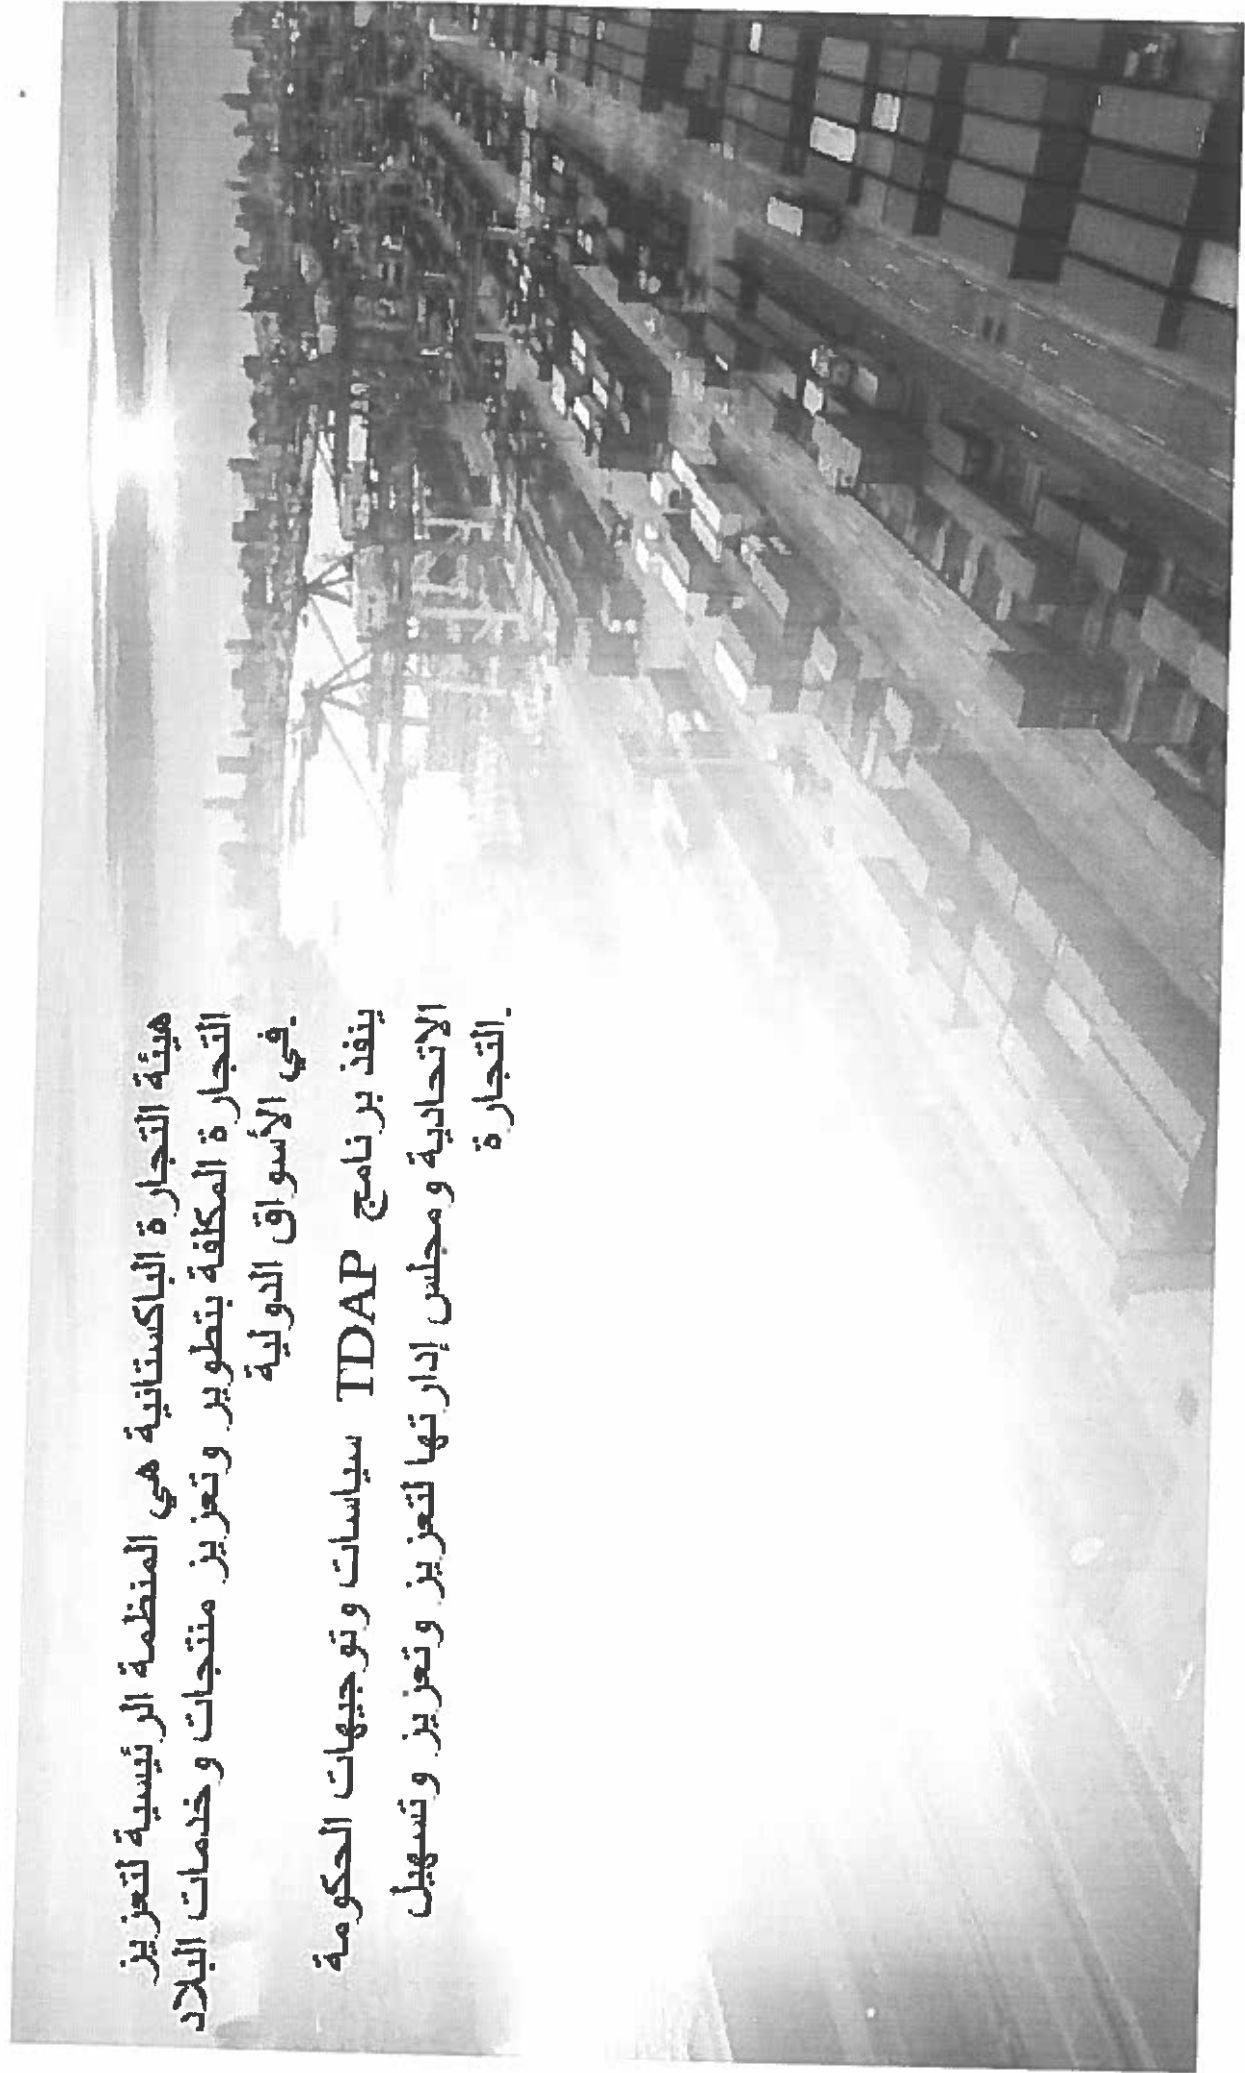 هيئة التجارة الباكستانية هي المنظمة الرئيسية لتعزيز
التجارة المكلفة بتطوير وتعزيز منتجات وخدمات البلاد
في الأسواق الدولية.
ينفذ برنامج TDAP سياسات وتوجيهات الحكومة
الاتحادية ومجلس إدارتها لتعزيز وتعزيز وتسهيل
التجارة.